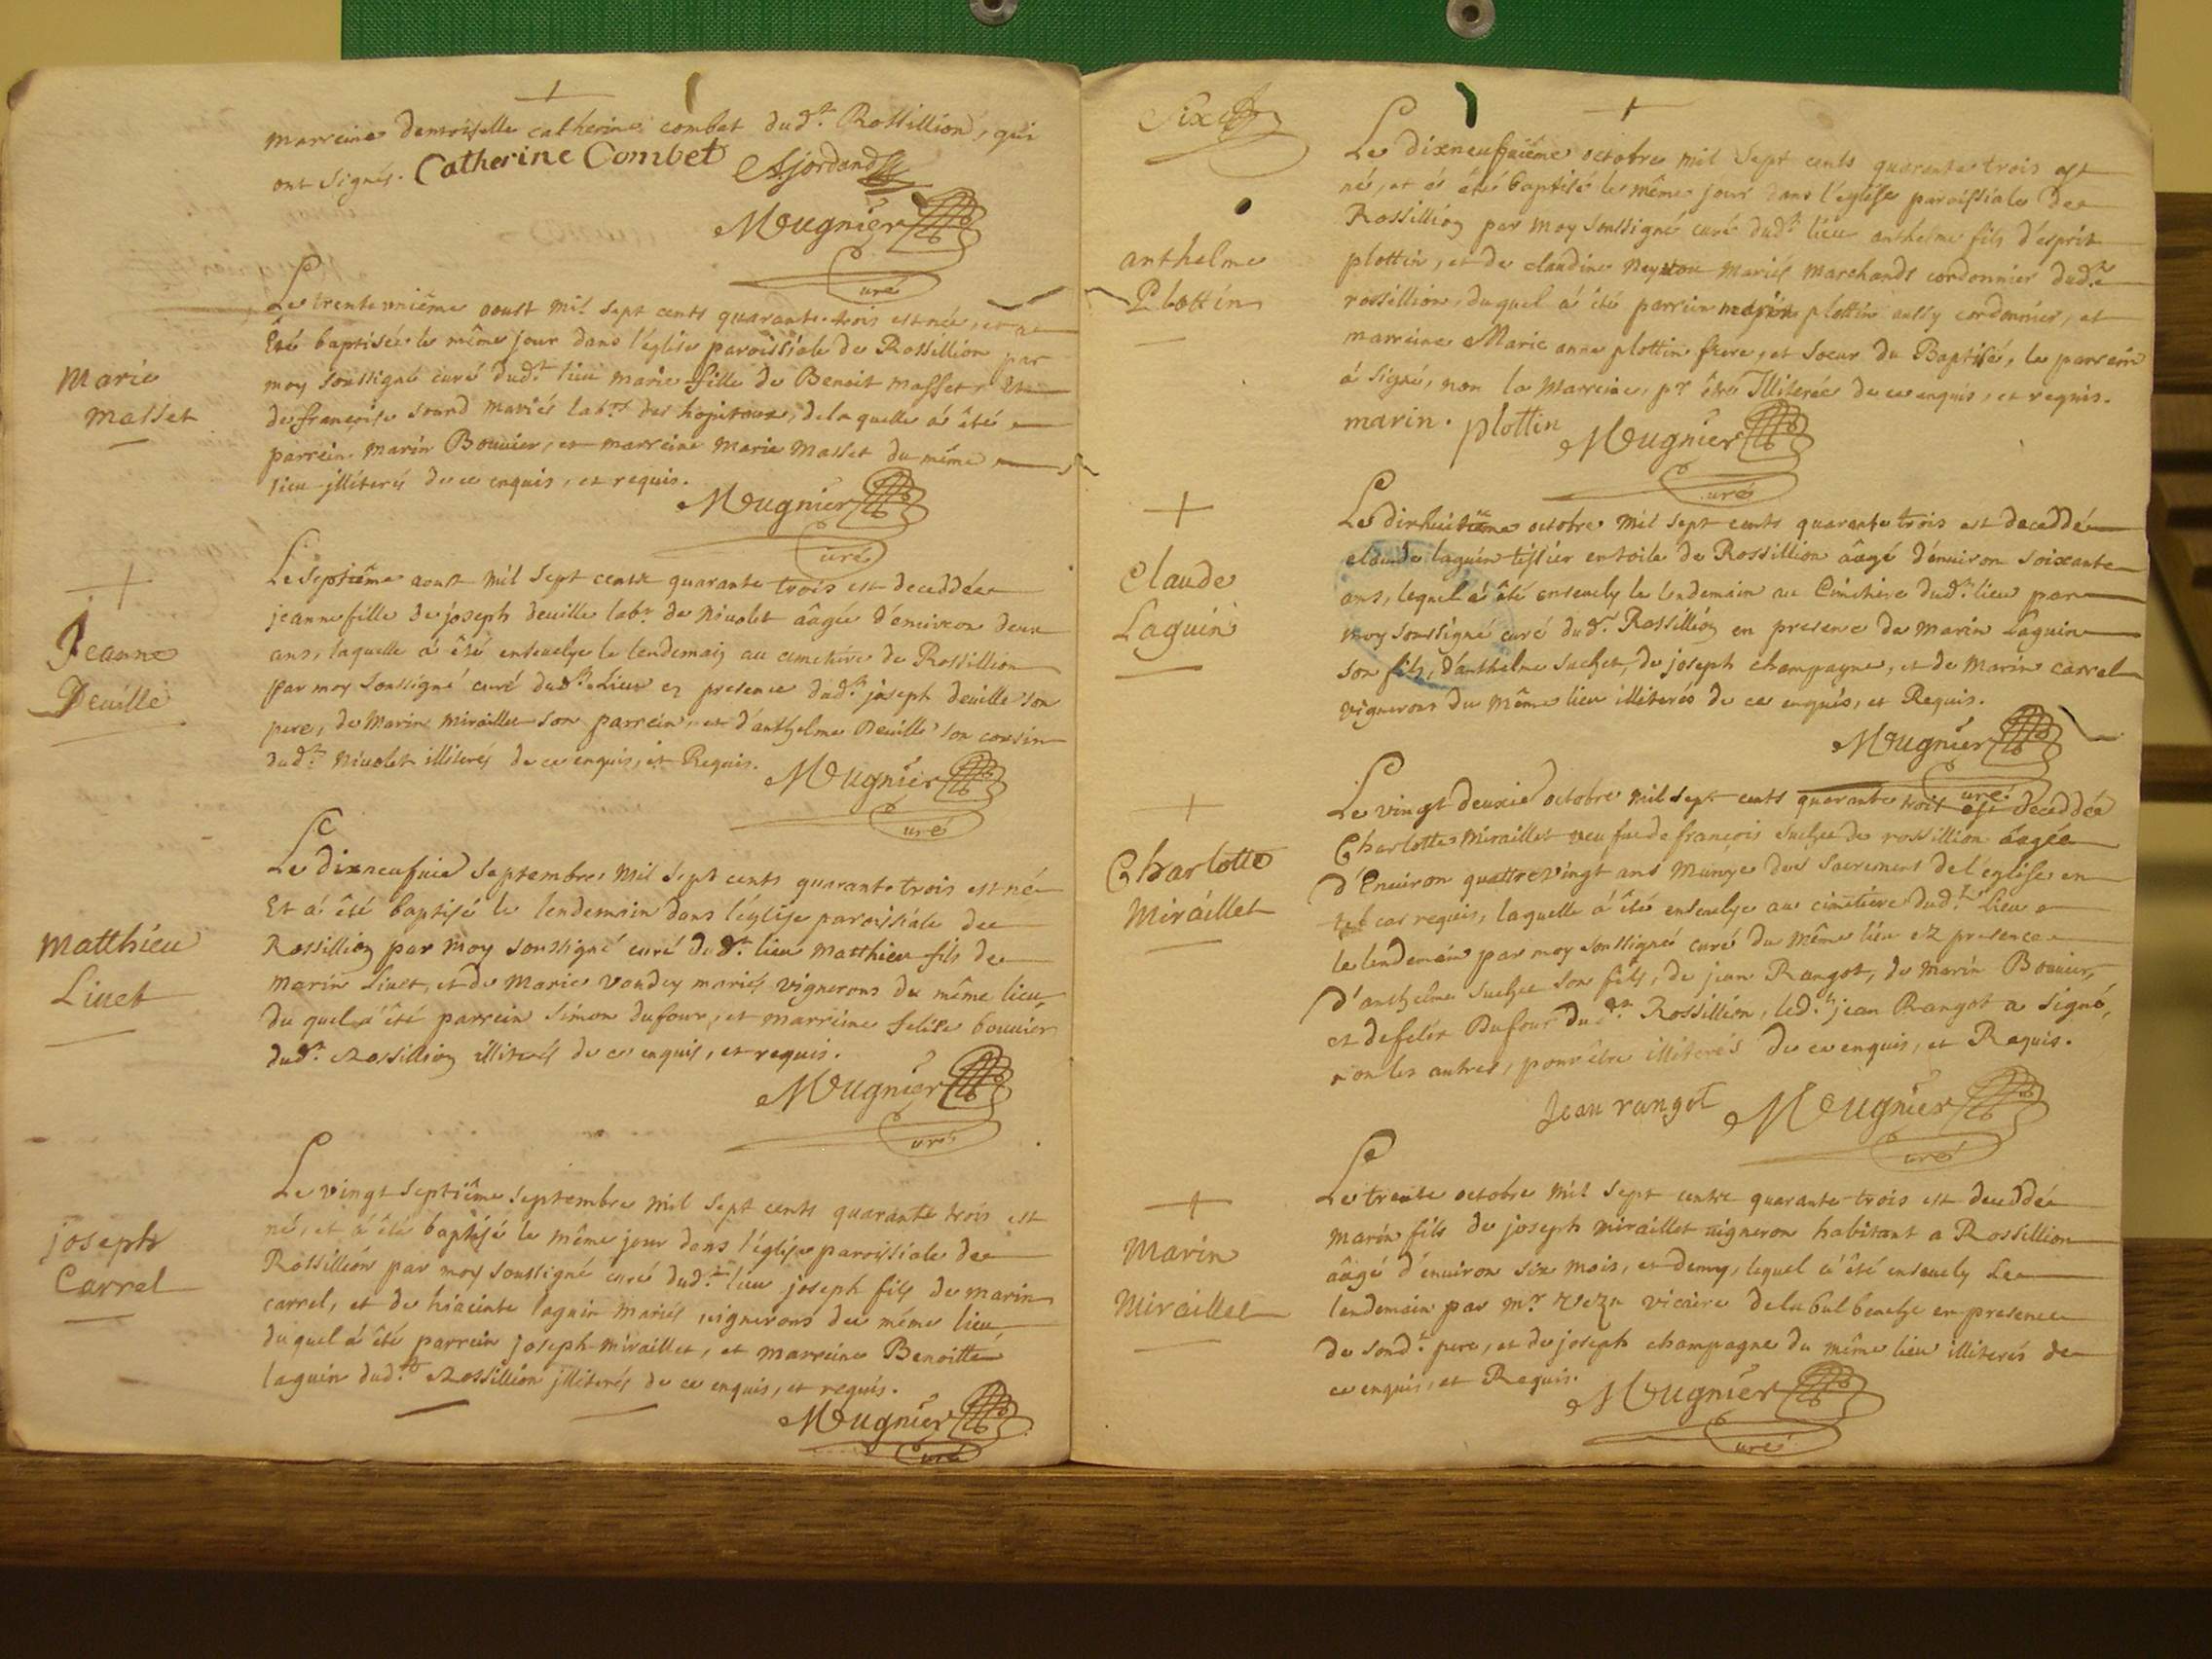 marreine demoiselle catherine combet dud.t Rossillion, qui
ont signés. Catherine Combet Ajordand
Meugnier
curé
Le trente unième aoust mil sept cents quarante trois est née, et a
Été baptisée le même jour dans l'église paroissiale de Rossillion par
moy soussigné curé dud.t lieu marie fille de Benoit masset, et
de françoise sourd mariés lab.rs des hopitaux, de laquelle a été
parrein marin Bouvier, et marreine marie masset du même
lieu illiterés de ce enquis, et requis.
Meugnier
curé
marie
masset
Le septième aoust mil sept cents quarante trois est deceddée
jeanne fille de joseph deuille lab.r de nivolet âagée d'environ deux
ans, laquelle a été ensevelye le lendemain au cimetière de Rossillion
par moy soussigné curé dud.t Lieu en presence dud.t joseph deuille son
pere, de Marin miraillet son parrein, et d'anthelme Deuille son cousin
dud.t nivolet illiterés de ce enquis, et Requis.
Meugnier
curé
Jeanne
Deuille
Le dixneufvie septembre mil sept cents quarante trois est né
Et a été baptisé le lendemain dans l'église paroissiale de
Rossillion par moy soussigné curé dud.t lieu matthieu fils de
marin Livet, et de Marie vondey mariés vignerons du même lieu
du quel a été parrein simon dufour, et marreine felise bouvier
dud.t Rossillion illiterés de ce enquis, et requis.
Meugnier
curé
matthieu
Livet
Le vingt septième septembre mil sept cents quarante trois est
né, et a été baptisé le même jour dans l'église paroissiale de
Rossillion par moy soussigné curé dud.t lieu joseph fils de marin
carrel, et de hiacinte laguin mariés vignerons du même lieu
du quel a été parrein joseph miraillet, et marreine Benoitte
laguin dud.t Rossillion illiterés de ce enquis, et requis.
Meugnier
Curé
joseph
Carrel
Six
Le dixneufvième octobre mil sept cents quarante trois est
né, et a été baptisé le même jour dans l'église paroissiale de
Rossillion par moy soussigné curé dud.t lieu anthelme fils d'esprit
plottin, et de claudine neyton mariés marchands cordonnier dud.t
rossillion, duquel a été parrein marin plottin aussy cordonnier, et
marreine Marie anne plottin frere, et soeur du Baptisé, le parrein
á signé, non la Marreine, p.r être Illiterée de ce enquis, et requis.
marin. plottin Meugnier
curé
anthelme
Plottin
Le dixhuitième octobre mil sept cents quarante trois est deceddé
claude laguin tissier en toile de Rossillion âagé d'environ soixante
ans, lequel a été ensevely le lendemain au Cimetière dud.t lieu par
moy soussigné curé dud.t Rossillion en presence de marin Laguin
son fils, d'anthelme suchet, de joseph champagne, et de Marin carrel
vignerons du même lieu illiterés de ce enquis, et Requis.
Meugnier
curé
Claude
Laguin
Le vingt deuxie octobre mil sept cents quarante trois est deceddée
Charlotte Miraillet veufue de françois suchet de rossillion âagée
d'Environ quattrevingt ans munye des sacrements de l'église en
tel cas requis, laquelle a été ensevelye au cimetière dud.t Lieu
le lendemain par moy soussigné curé du même lieu en presence
d'anthelme suchet son fils, de jean Rangot, de marin Bouvier,
et de felix Dufour dud.t Rossillion, led.t jean Rangot a signé,
non les autres, pour être illiterés de ce enquis, et Requis.
Jean rangot Meugnier
curé
Charlotte
Miraillet
Le trente octobre mil sept cents quarante trois est deceddé
marin fils de joseph miraillet vigneron habitant a Rossillion
âagé d'environ six mois, et demy, lequel a été ensevely Le
lendemain par m.r vicaire de la bulbenche en presence
de sond.t pere, et de joseph champagne du même lieu illiterés de
ce enquis, et Requis. Meugnier
curé
Marin
Miraillet